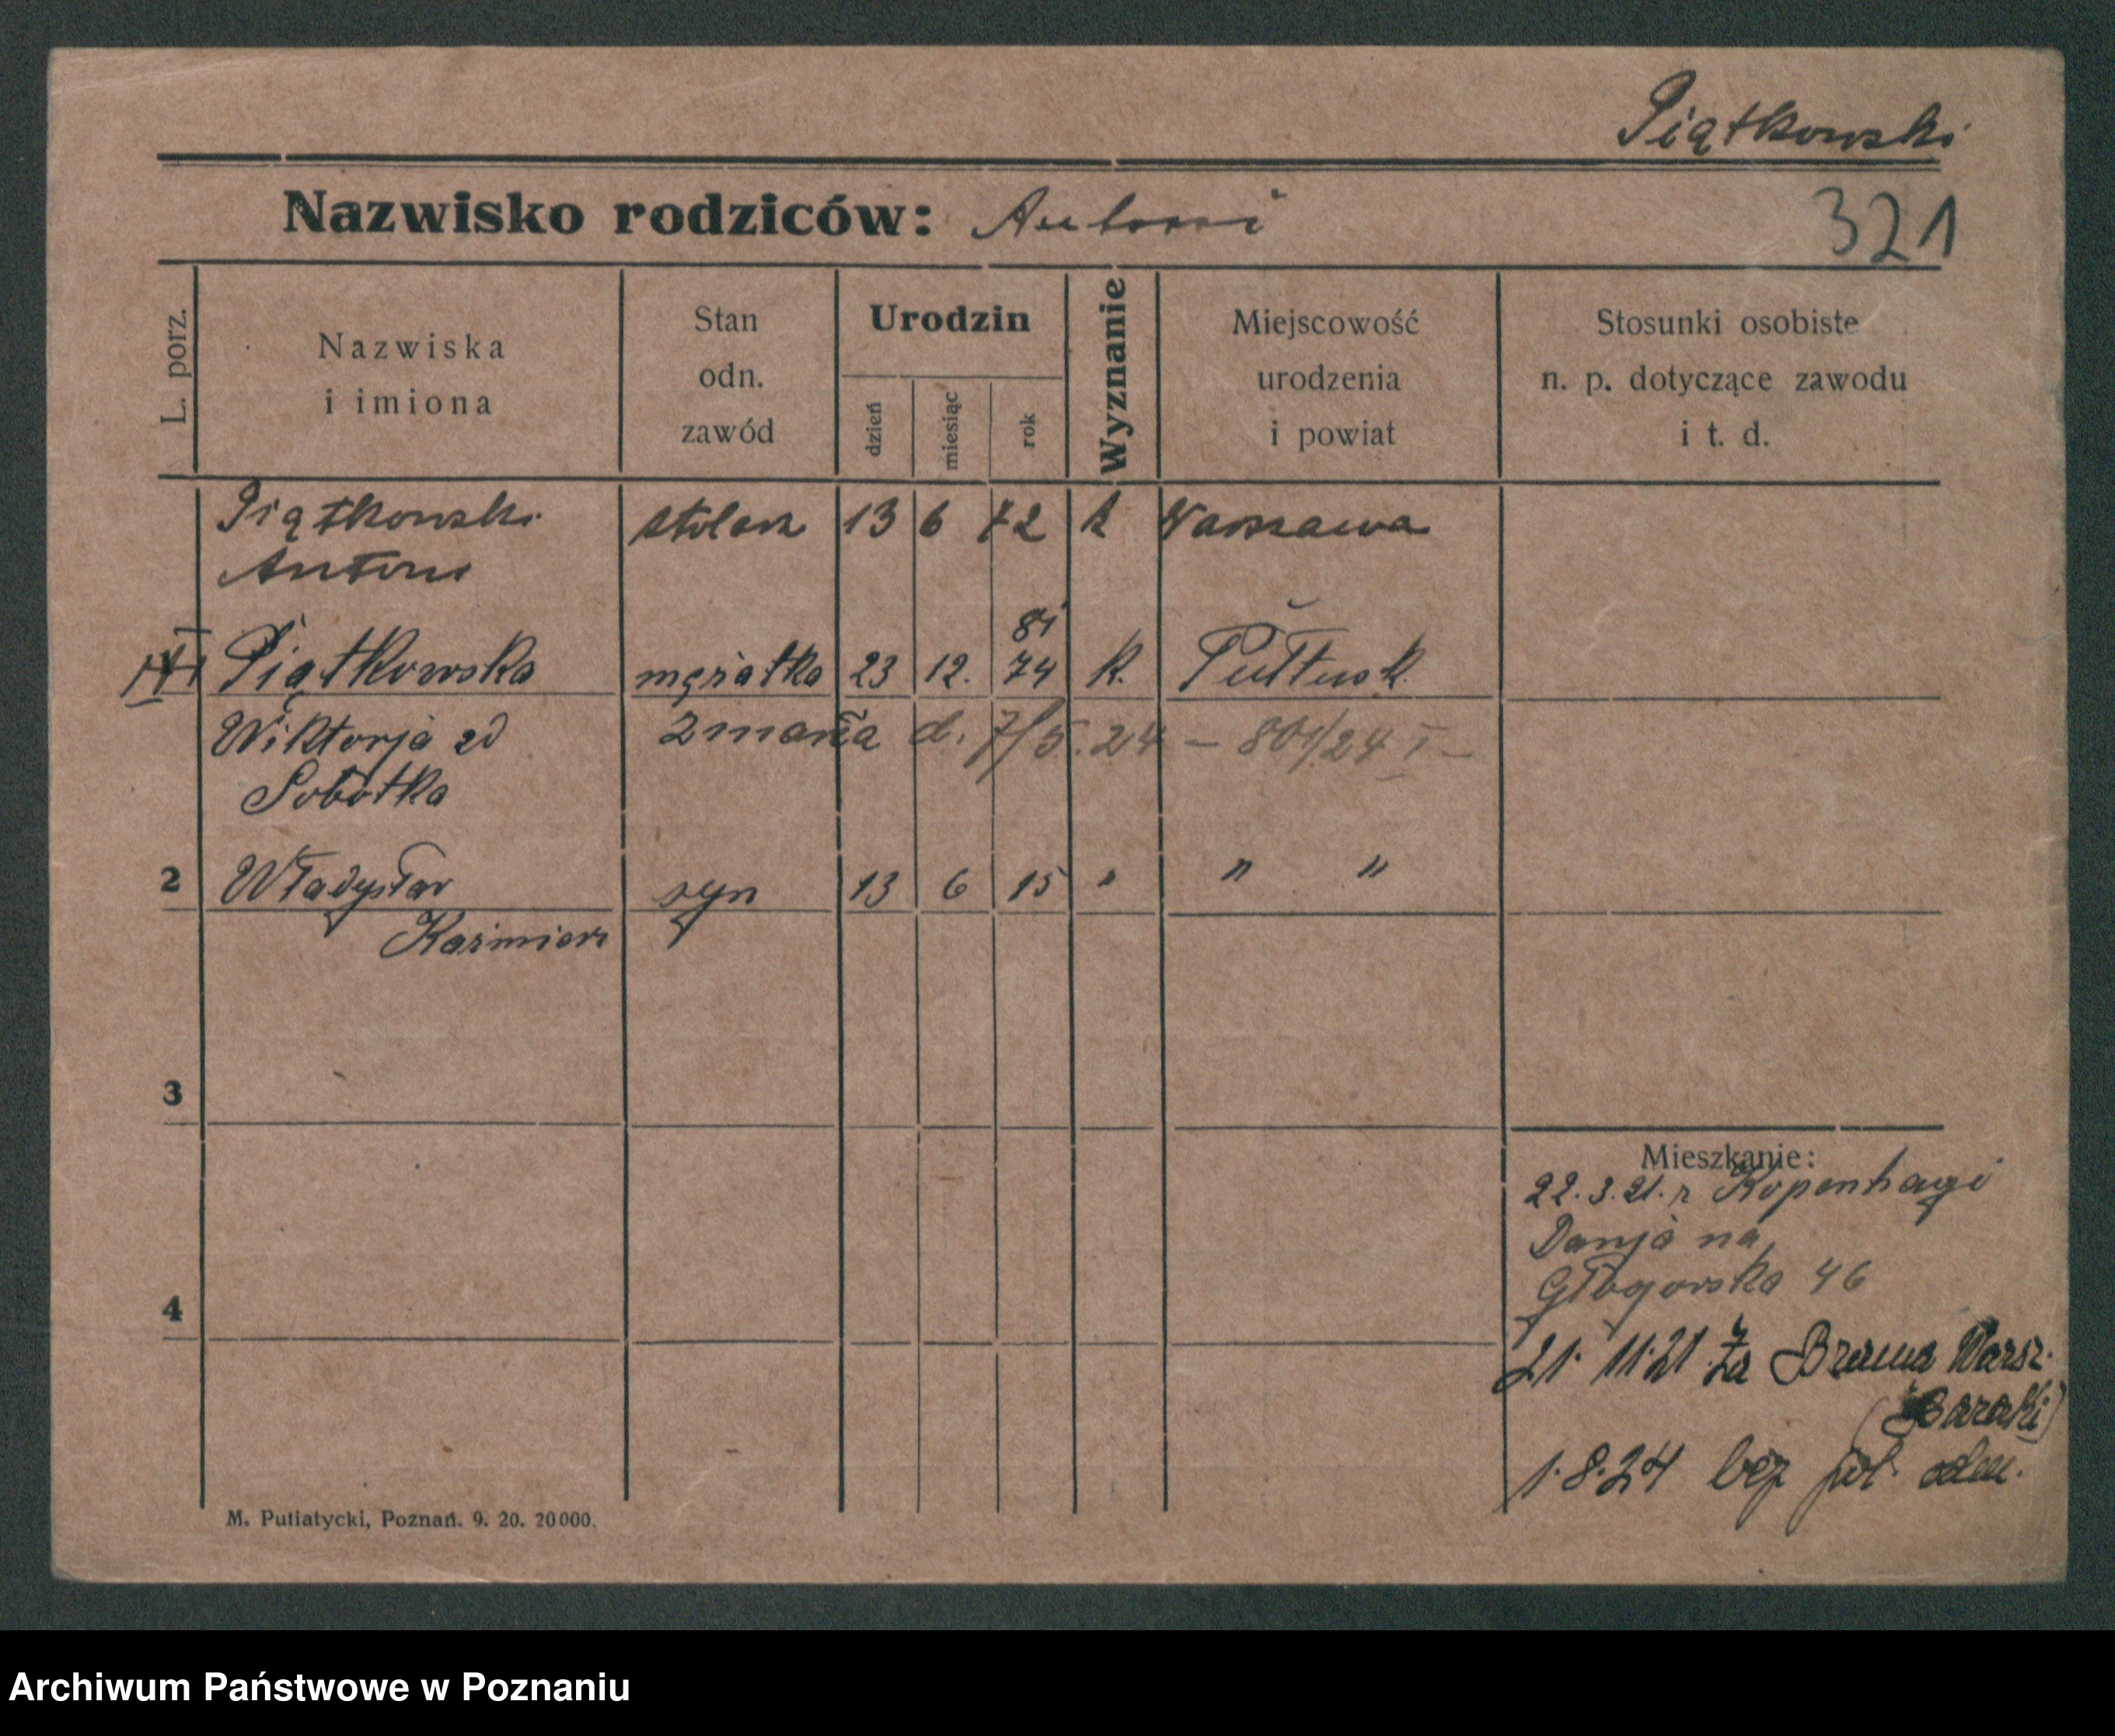 Piątkowski
Nazwisko rodziców: Antoni
321
L. porz.
Nazwiska
i imiona
Stan
odn.
zawód
Urodzin
dzień
miesiąc
rok
Wyznanie
Miejscowość
urodzenia
i powiat
Stosunki osobiste
n. p. dotyczące zawodu
i t. d.
Piątkowski stolarz 13 6 72 k Warszawa
Antoni
81
Piątkowska mężatka 23 12. 74 k. Pułtusk
Wiktorja zd zmarła d. 7/5.24 – 801/24 I –
Sobotka
2 Władysław syn 13 6 15 " " "
Kaźmierz
3
Mieszkanie:
22.3.21. z Kopenhagi
Danja na
Głogowska 46
4
21. 11.21 Za Brama Warsz.
(Baraki)
1.8.24 bez pol. odm.
M. Putiatycki, Poznań. 9. 20. 20000.
Archiwum Państwowe w Poznaniu